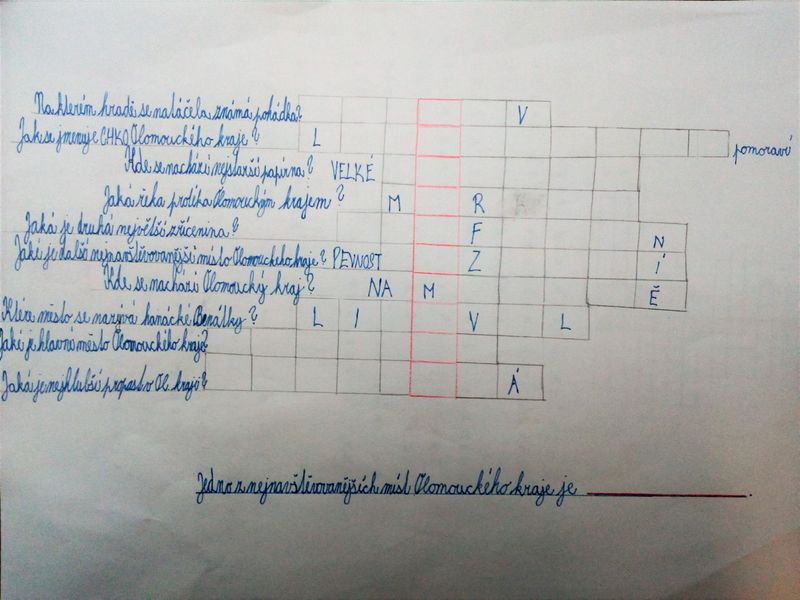 Na kterém hradě se natáčela známá pohádka? V
Jak se jmenuje CHKO Olomouckého kraje? L pomoraví
Kde se nachází nejstarší papírna? VELKÉ
Jaká řeka protíká Olomouckým krajem? M R
Jaká je druhá největší zřícenina? F N
Jaké je další nejnavštěvovanější místo Olomouckého kraje? PEVNOST Z Í
Kde se nachází Olomoucký kraj? NA M Ě
Které město se nazývá hanácké Benátky? L I V L
Jaké je hlavní město Olomouckého kraje?
Jaká je nejhlubší propast v Ol. kraji? Á
Jedno z nejnavštěvovanějších míst Olomouckého kraje je .